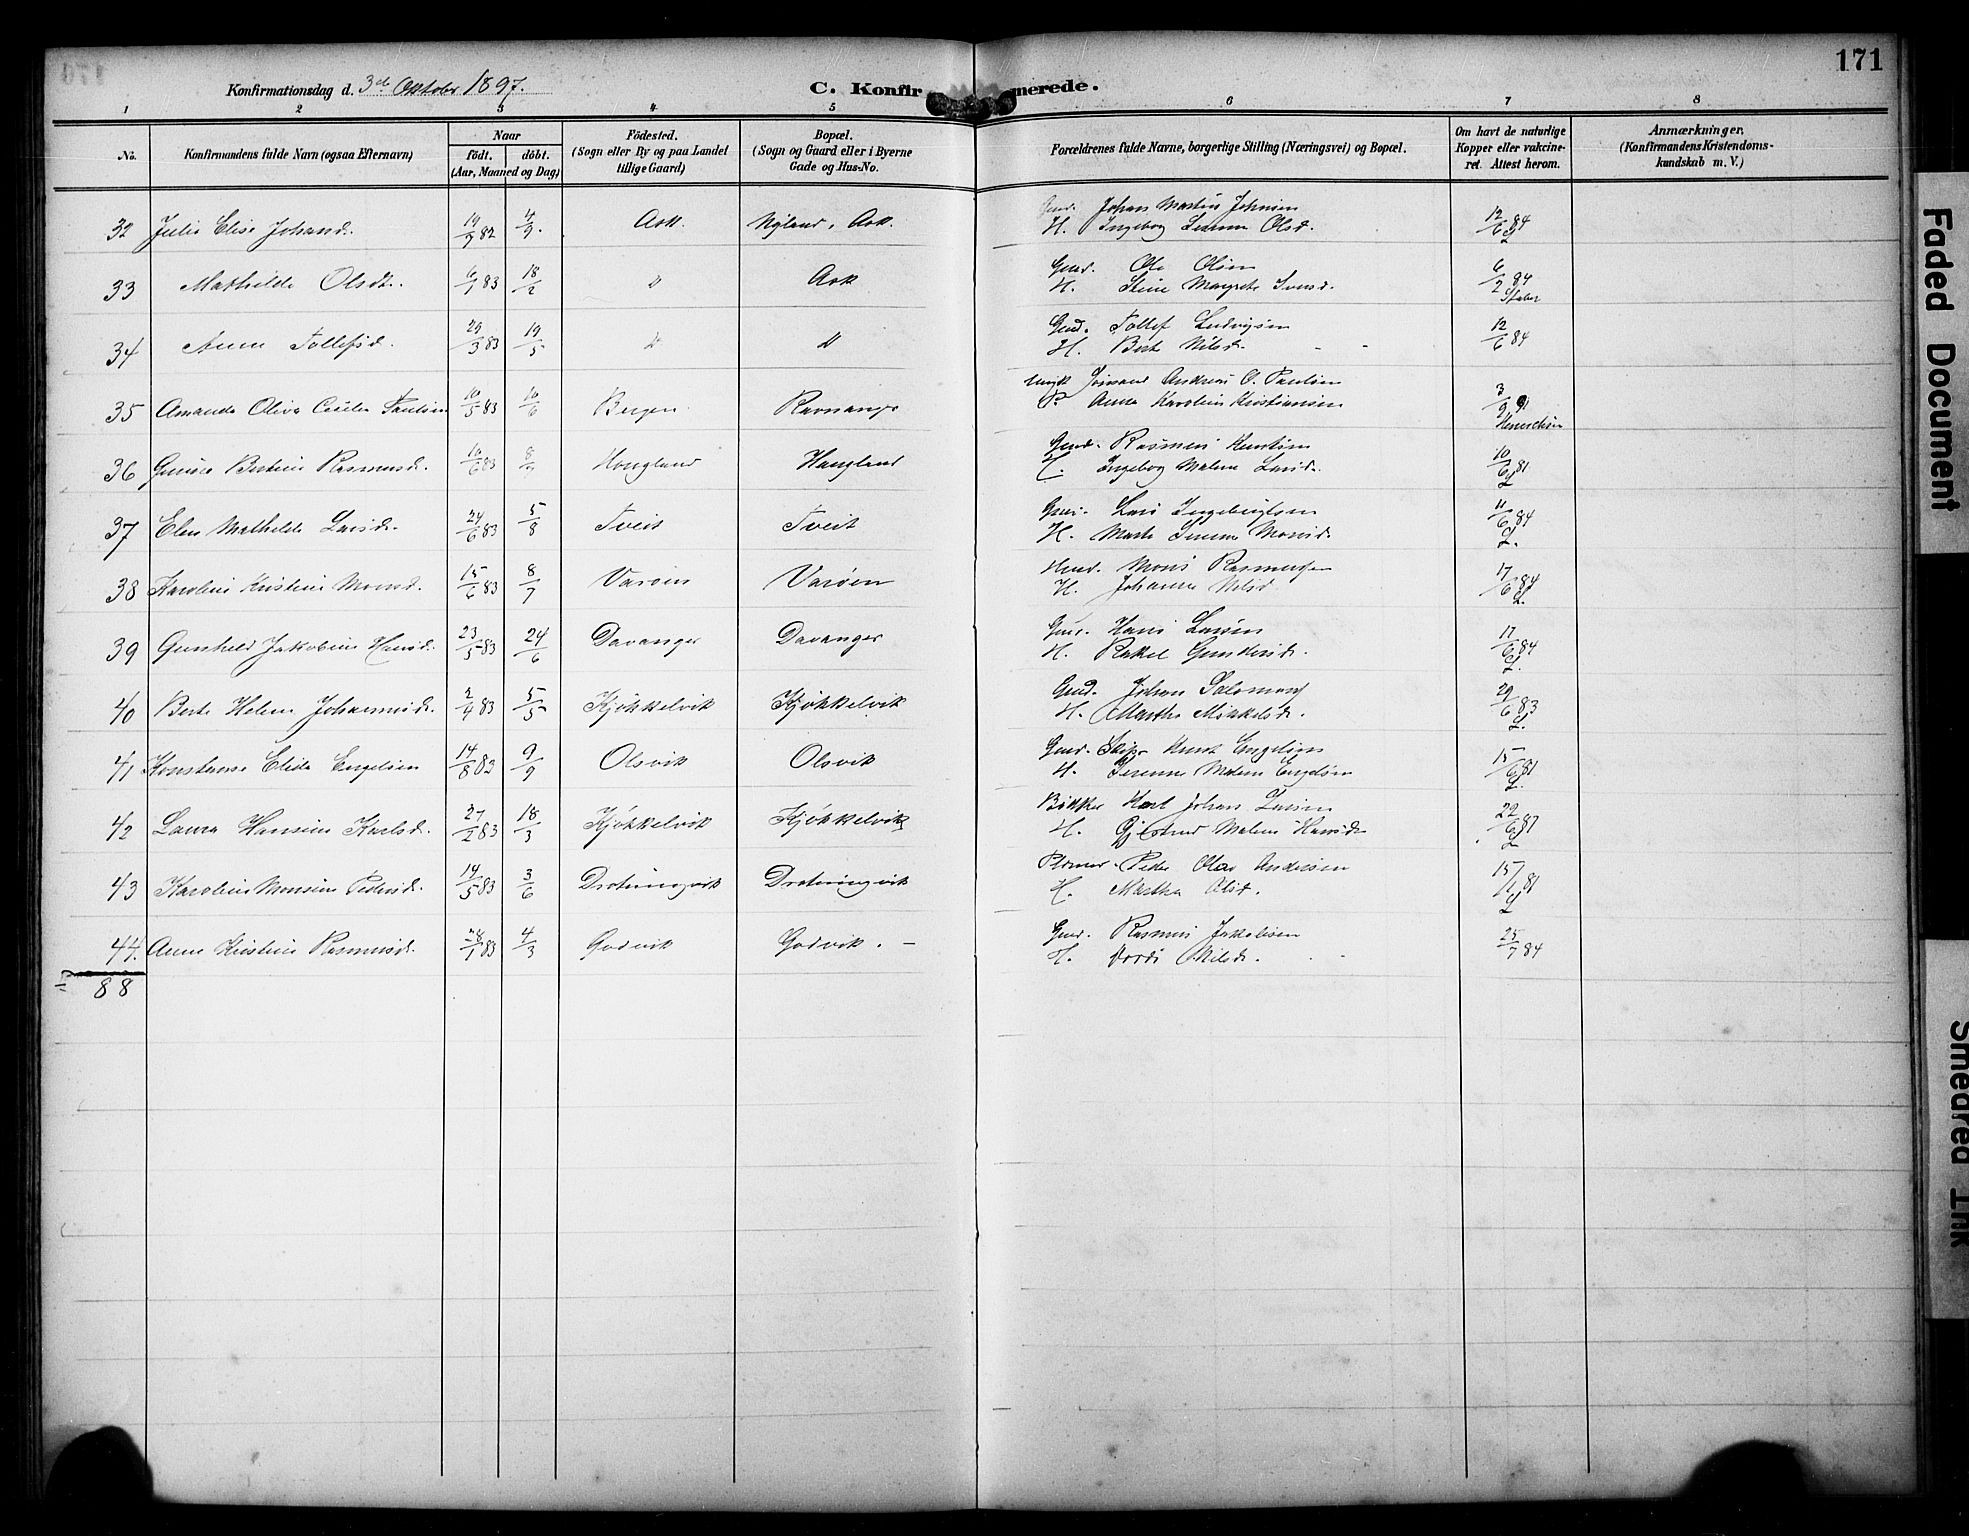 171
Konfirmationsdag d. 3de Oktober 1897.
C. Konfirmerede.
1 2 3 4 5 6 7 8
No. Konfirmandens fulde Navn (ogsaa Efternavn) Naar födt. döbt. (Aar, Maaned og Dag) Födested. (Sogn eller By og paa Landet tillige Gaard) Bopæl. (Sogn og Gaard eller i Byerne Gade og Hus-No. Forældrenes fulde Navne, borgerlige Stilling (Næringsvei) og Bopæl. Om havt de naturlige Kopper eller vakcineret. Attest herom. Anmærkninger. (Konfirmandens Kristendomskundskab m. V.)
32 Julie Elise Johansd. 19/7 82 4/9. Ask. Nyland, Ask. Gmd. Johan Martin Johnsen 12/6 84
H. Ingeborg Serine Olsd.
33 Mathilde Olsdt. 6/1 83 18/2 " Ask Gmd. Ole Olsen 6/2 84
H. Stine Margrete Iversd.
34 Anne Tollefsd. 29/3 83 19/5 " " Gmd. Tollef Ludvigsen 12/6 84
H. Berte Nilsd.
35 Amanda Oliva Cecilia Paulsen 10/5 83 10/6 Bergen Ravnanger Ungk. Sømand Andreas O. Paulsen 3/9
P. Anna Karoline Kristiansen
36 Gurine Bertine Rasmusd. 10/6 83 8/7 Hougland Haugland Gmd. Rasmus Knutsen 10/6 81
H. Ingeborg Malene Larsd.
37 Elen Mathilde Larsd. 24/6 83 5/8 Tveit Tveit Gmd. Lars Ingebrigtsen 11/6 84
H. Marte Serine Monsd. L.
38 Karoline Kristine Monsd. 15/6 83 8/7 Varøen Varøen Hmd. Mons Rasmussen 17/6 84
H. Johanne Nilsd L.
39 Gunhild Jakobine Hansd. 23/5 83 24/6 Davanger Davanger Gmd. Hans Larsen 17/6 84
H. Rakel Gundersd. L.
40 Berte Helene Johannesd. 2/4 83 5/5 Kjøkkelvik Kjøkkelvik Gmd. Johan Salomons 29/6 83
H. Marthe Mikkelsd. L.
41 Konstanse Elida Engelsen 14/8 83 9/9 Olsvik Olsvik Gmd. Skipr Knut Engelsen 15/6 81
H. Serine Malene Engelsen L.
42 Laura Hansine Karlsd. 27/2 83 18/3 Kjøkkelvik Kjøkkelvik Bøkker Karl Johan Larsen 22/6 87
H. Gjertrud Malene Hansd. L
43 Karoline Monsine Pedersd. 14/5 83 3/6 Drotningsvik Drotningsvik Pladsmd. Peder Olav Andersen 15/ 81
H. Martha Olsd. L
44. Anne Kristine Rasmusd. 28/1 83 4/3 Godvik Godvik. - Gmd. Rasmus Jakobsen 25/7 84
H. Dordi Nilsd.
88
Faded Document
Smeared Ink